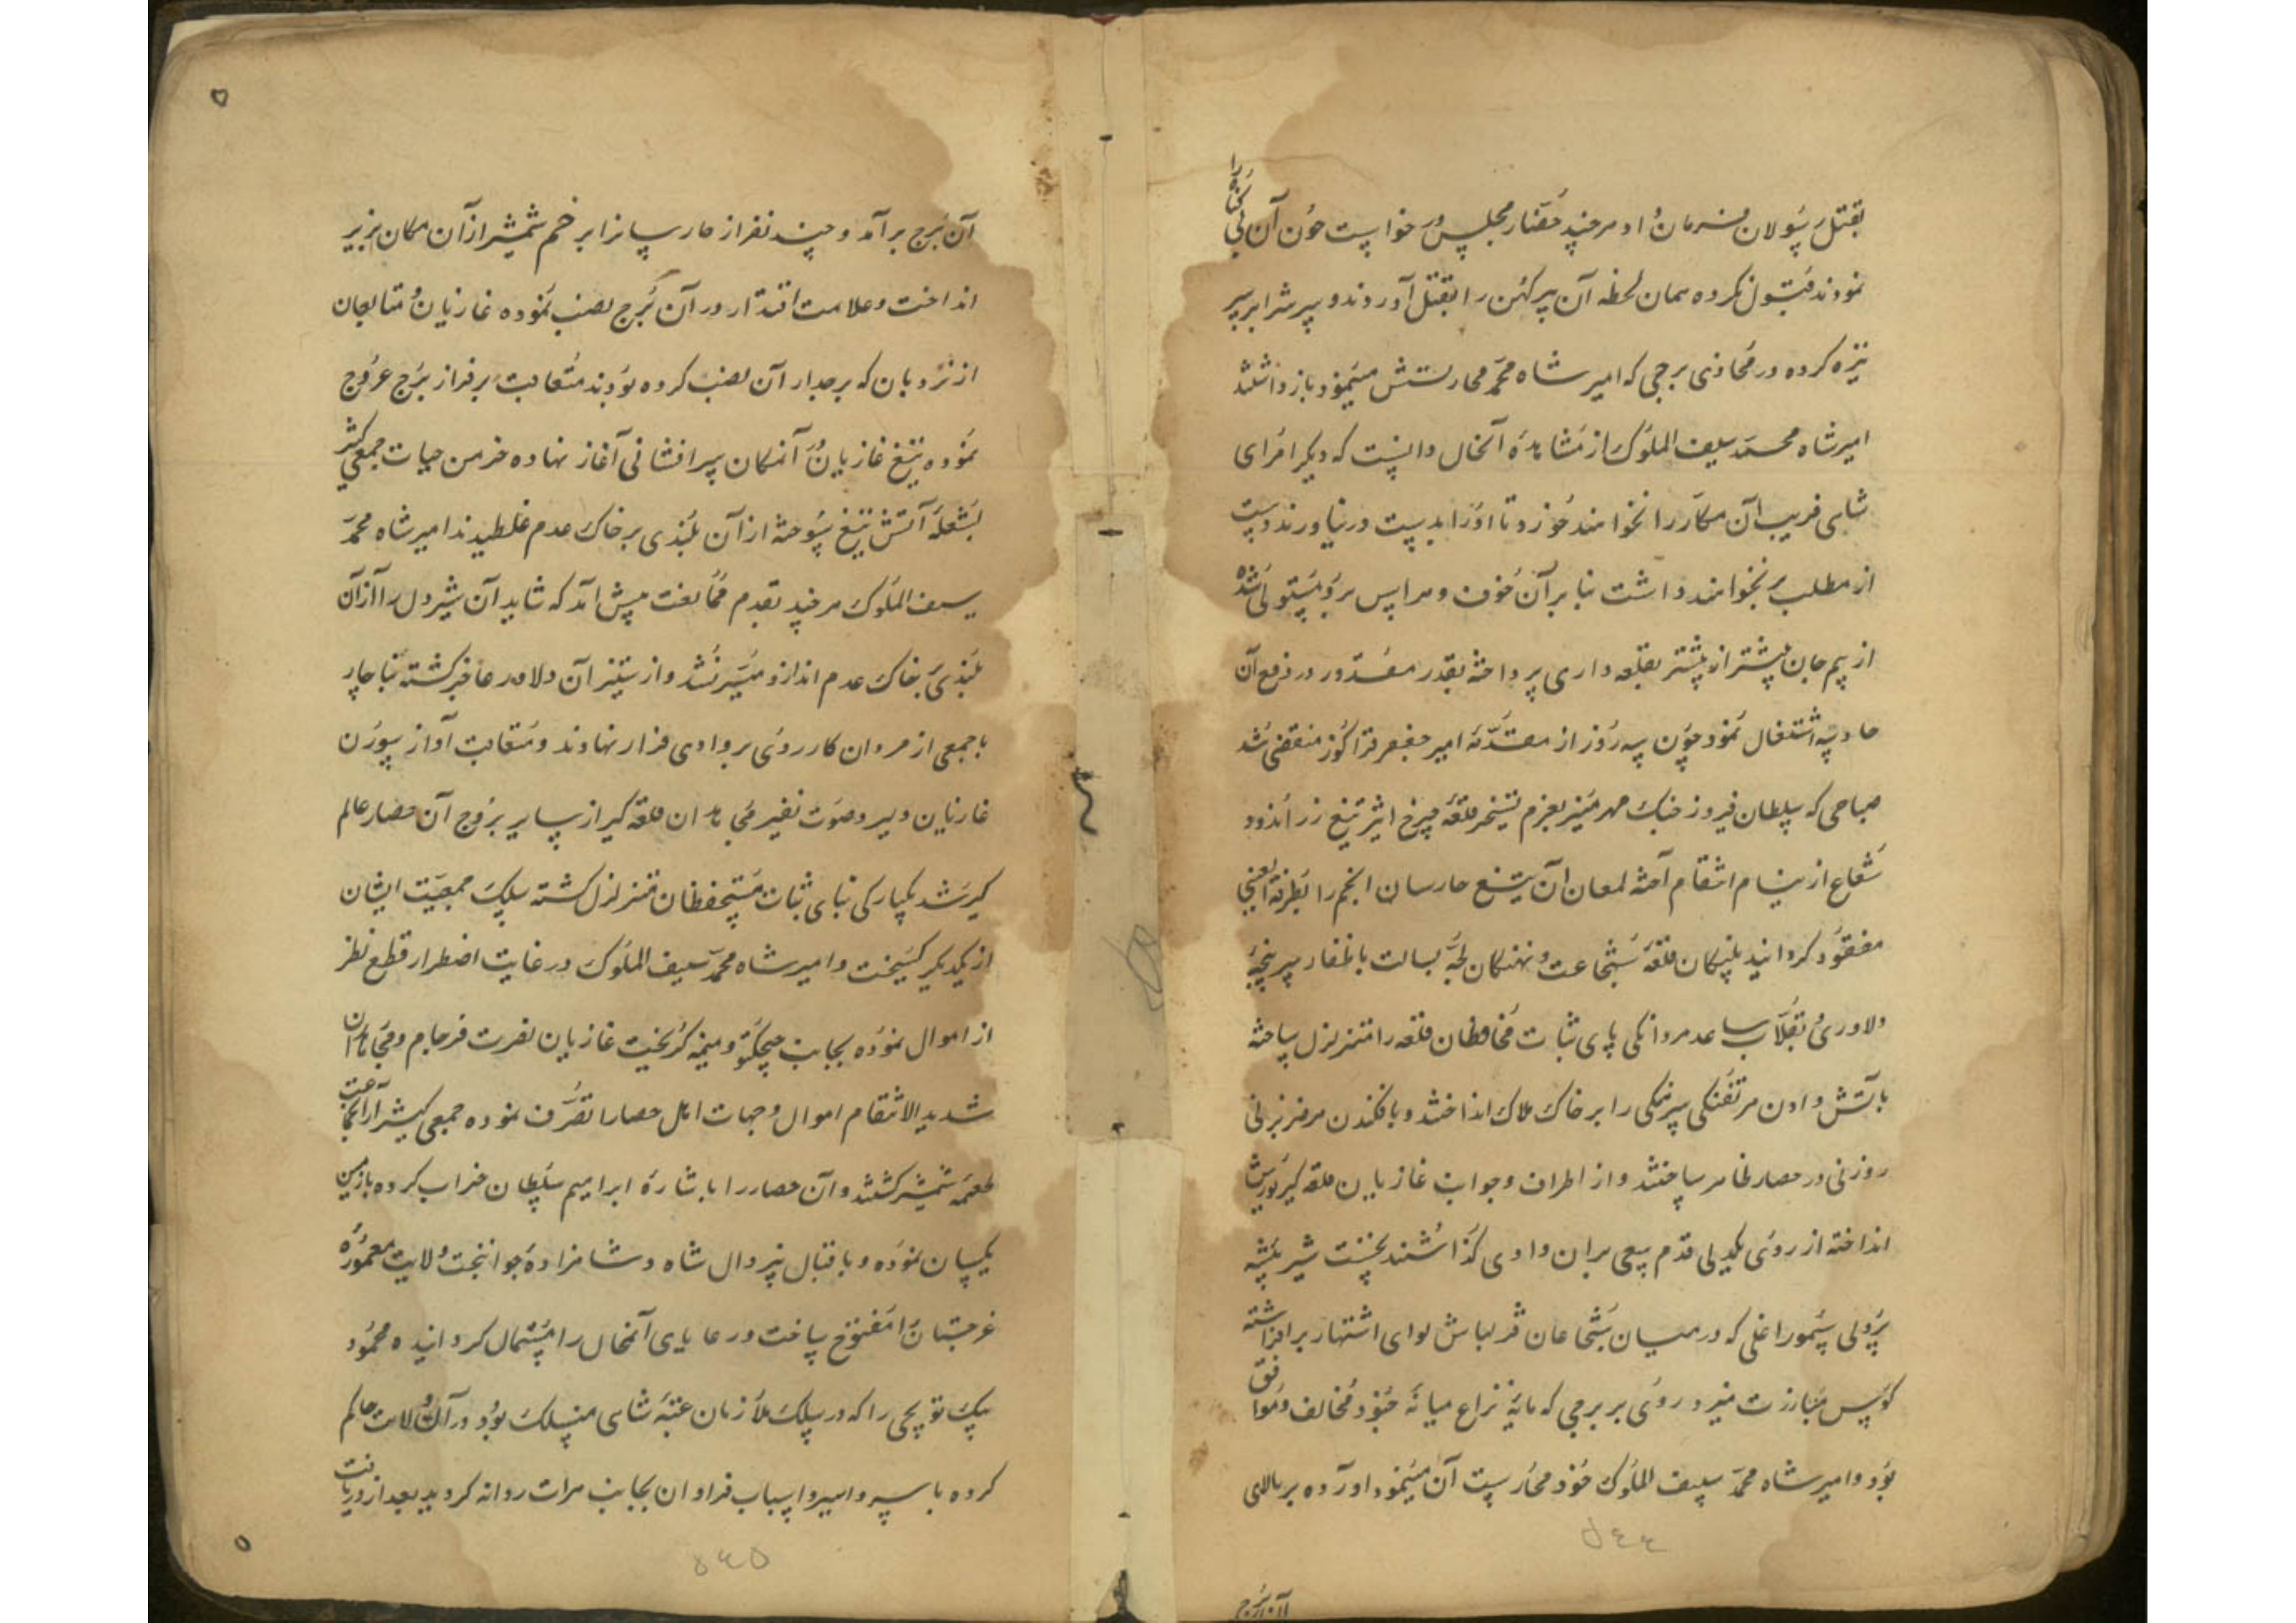 بقتل رسولان فرمان داد هر چند حضار مجلس در خواست خون آن بی گناه را
نمودند قبول نکرده همان لحظه آن پیر کهن را بقتل آوردند و سرش را بر سر
نیزه کرده در محاذی برجی که امیر شاه محمد محارستش مینمود باز داشتند
امیر شاه محمد سیف الملوک از مشاهده آنحال دانست که دیگر امرای
شاهی فریب آن مکار را نخواهند خورد و تا او را بدست در نیاورند دست
از مطلب بر نخواهند داشت بنا بر آن خوف و هراس برو مستولی شده
از بیم جان بیشتر از پیشتر بقلعه داری پرداخته بقدر مقدور در دفع آن
حادثه اشتغال نمود چون سه روز از مقدمه امیر جعفر قراکوز منقضی شد
صباحی که سلطان فیروز جنک مهر منیر بعزم تسخیر قلعه چرخ اثیر تیغ زر اندود
شعاع از نیام انتقام آخته لمعان آن تیغ حارسان انجم را بطرفة العینی
مفقود کردانید پلنکان قله شجاعت و نهنکان لجه بسالت با ظفار سرپنجه
دلاوری و تقلاب ساعد مردانکی پای ثبات محافظان قلعه را متزلزل ساخته
باتش دادن هر تفنکی سرهنکی را بر خاک هلاک انداختند و بافکندن هر ضربزنی
روزنی در حصار ظاهر ساختند و از اطراف و جوانب غازیان قلعه گیر یورش
انداخته از روی یکدلی قدم سعی بران وادی گذاشتند نخست شیر بیشه
پردلی تیمور اغلی که در میان شجاعان قزلباش لوای اشتهار بر افراشته
کوس مبارزت میزد روی بر برجی که مایه نزاع میانه جنود مخالف و موافق
بود و امیر شاه محمد سیف الملوک خود محارست آن مینمود آورده بر بالای
آن برج
٥٤٤
آن برج بر آمد و چند نفر از حارسانرا بزخم شمشیر از آن مکان بزیر
انداخت و علامت اقتدار در آن برج نصب نموده غازیان و متابعان
از نردبان که بر جدار آن نصب کرده بودند متعاقب بر فراز برج عروج
نموده تیغ غازیان و آنمکان سر افشانی آغاز نهاده خرمن حیات جمعی کثیر
بشعله آتش تیغ سوخته از آن بلندی بر خاک عدم غلطیدند امیر شاه محمد
سیف الملوک هر چند بقدم ممانعت پیش آمد که شاید آن شیردل را از آن
بلندی بخاک عدم اندازد میسر نشد و از ستیز آن دلاور عاجز گشته بناچار
با جمعی از مردان کار روی بر وادی فرار نهادند و متعاقب آواز سورن
غازیان دلیر و صوت نفیر مجاهدان قلعه گیر از سایر بروج آن حصار عالم
گیر شد یکبارکی بنای ثبات مستحفظان متزلزل گشته سلک جمعیت ایشان
از یکدیکر کسیخت و امیر شاه محمد سیف الملوک در غایت اضطرار قطع نظر
از اموال نموده بجانب چیچکتو و میمنه گریخت غازیان نصرت فرجام و مجاهدان
شدید الانتقام اموال و جهات اهل حصار را تصرف نموده جمعی کثیر از آن جماعت
طعمه شمشیر کشتند و آن حصار را باشاره ابراهیم سلطان خراب کرده با زمین
یکسان نموده و باقبال بیزوال شاه و شاهزاده جوانبخت ولایت معموره
غرجستان را مفتوح ساخت و رعایای آنمحال را مستمال کردانیده محمود
بیک توپچی را که در سلک ملازمان عتبه شاهی منسلک بود در آن ولایت حاکم
کرده با سر و اسیر و اسباب فراوان بجانب هرات روانه کردید بعد از دریافت
٥٤٥